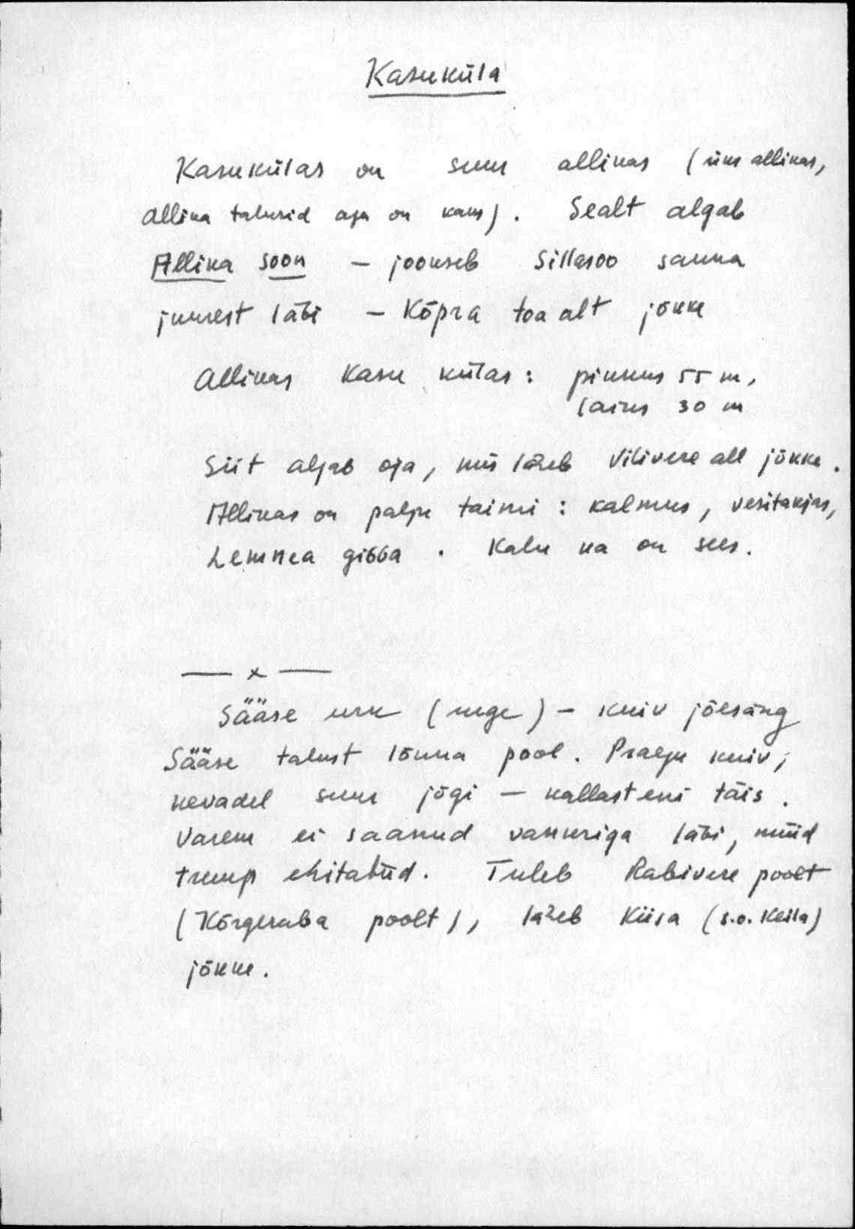 Kasuküla
Kasukülas on suur allikas (üks allikas,
allika talusid aga on kaks). Sealt algab
Allika soon — jookseb Sillasoo sauna
juurest läbi — Kõpra toa alt jõkke
Allikas Kasu külas: pikkus 55 m,
laius 30 m
Siit algab oja, mis läheb Vilivere all jõkke.
Allikas on palju taimi: kalmus, vesitarjas,
Lemnea gibba. Kalu ka on sees.
— x —
Sääse urk (        ) — kuiv jõesäng
Sääse talust lõuna pool. Praegu kuiv,
kevadel suur jõgi — kallasteni täis.
Varem ei saanud vankriga läbi, nüüd
trump ehitatud. Tuleb Rabivere poolt
(Kõrgeraba poolt), läheb Kiisa (s.o. Keila)
jõkke.